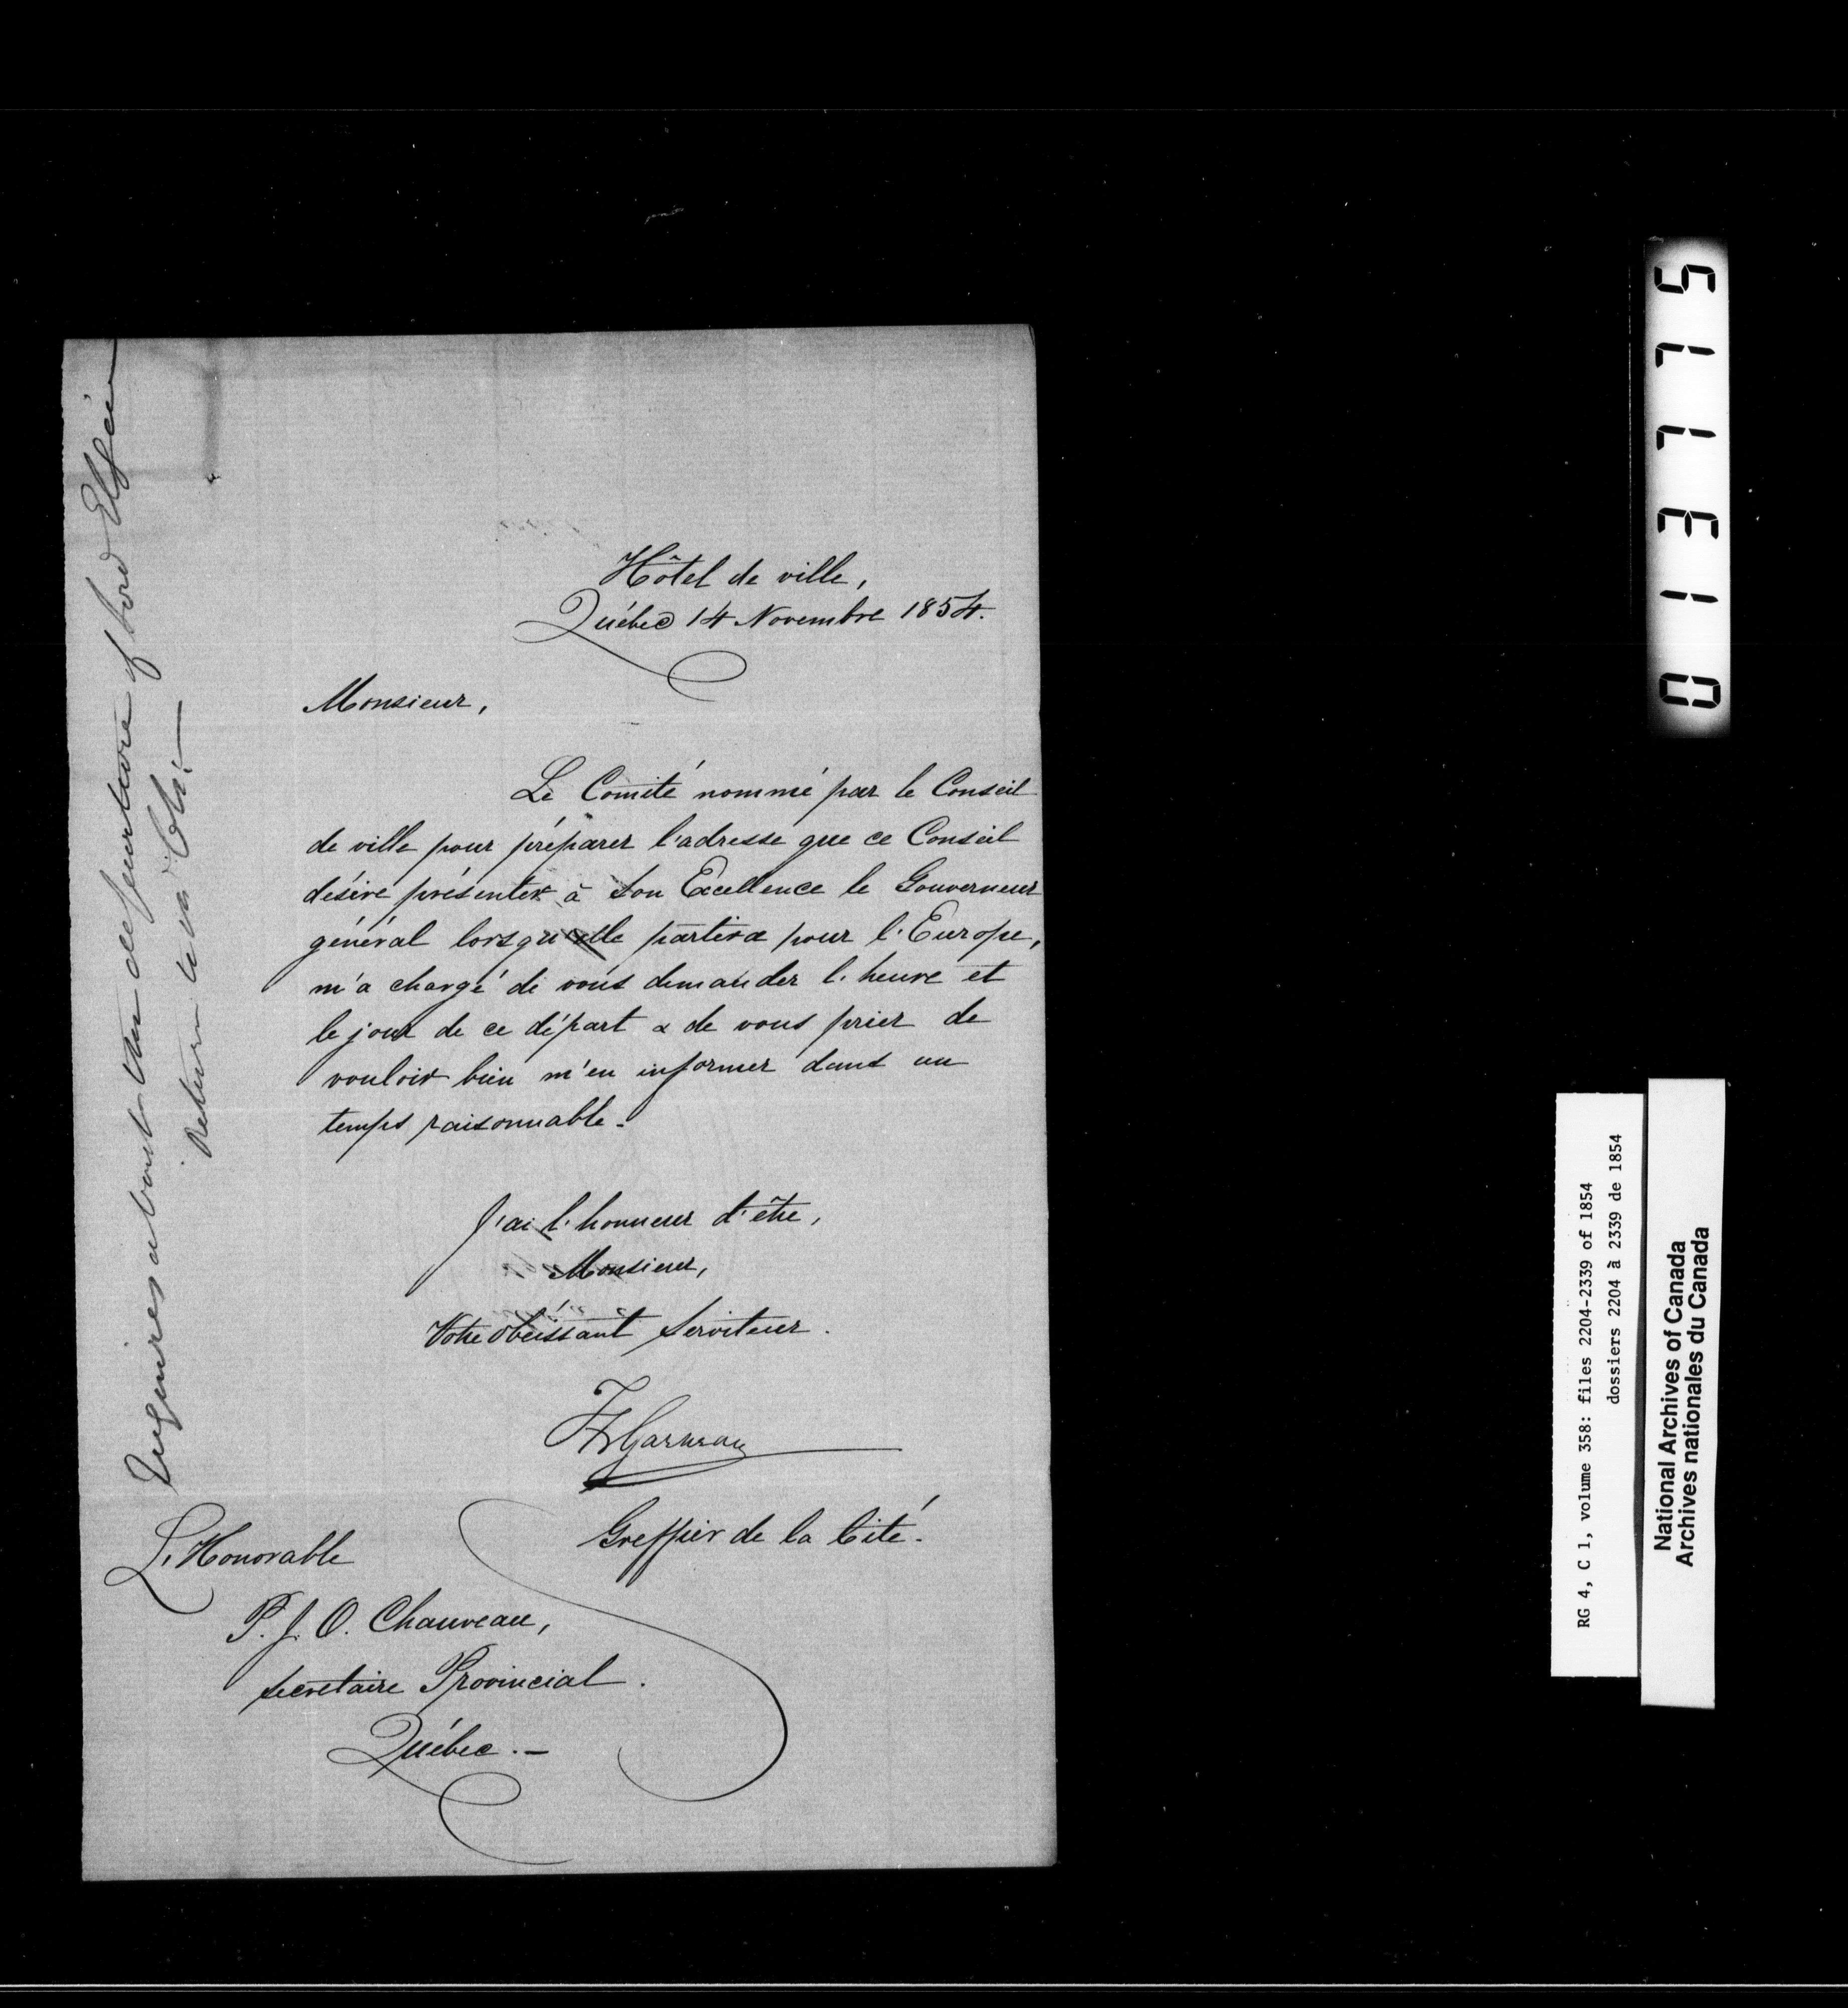 Hôtel de ville,
Québec 14 Novembre 1854.
Monsieur,
Le Comité nommé par le Conseil
de ville pour préparer l'adresse que ce Conseil
désire présenter à Son Excellence le Gouverneur
général lorsqu'elle partira pour l'Europe,
m'a chargé de vous demander l'heure et
le jour de ce départ & de vous prier de
vouloir bien m'en informer dans un
temps raisonnable.
J'ai l'honneur d'être,
Monsieur,
Votre obéissant Serviteur.
FX Garneau
Greffier de la Cité.
L'Honorable
P. J. O. Chauveau,
Secrétaire Provincial.
Québec.—
Inquires about the departure of Lord Elgin
Return to
51131310
RG 4, C 1, volume 358: files 2204-2339 of 1854
dossiers 2204 à 2339 de 1854
National Archives of Canada
Archives nationales du Canada